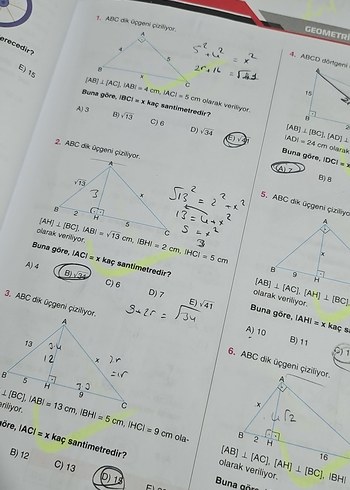 GEOMETRİ
erecedir?
E) 15
1. ABC dik üçgeni çiziliyor.
A
4
5
B
C
5² + 4² = x²
25+16 = √41
[AB] ⊥ [AC], |AB| = 4 cm, |AC| = 5 cm olarak veriliyor.
Buna göre, |BC| = x kaç santimetredir?
A) 3
B) √13
C) 6
D) √34
E) √41
2. ABC dik üçgeni çiziliyor.
A
√13
3
x
B
2
H
5
C
√13² = 2² + x²
13 = 4 + x²
[AH] ⊥ [BC], |AB| = √13 cm, |BH| = 2 cm, |HC| = 5 cm
olarak veriliyor.
Buna göre, |AC| = x kaç santimetredir?
A) 4
B) √34
C) 6
D) 7
E) √41
9+25 = √34
3. ABC dik üçgeni çiziliyor.
A
13
12
x
B
5
H
9
C
⊥ [BC], |AB| = 13 cm, |BH| = 5 cm, |HC| = 9 cm ola-
eriliyor.
öre, |AC| = x kaç santimetredir?
B) 12
C) 13
D) 15
4. ABCD dörtgeni
A
15
B
[AB] ⊥ [BC], [AD] ⊥
|AD| = 24 cm olarak
Buna göre, |DC| = x
A) 7
B) 8
5. ABC dik üçgeni çiziliyo
A
x
B
9
H
[AB] ⊥ [AC], [AH] ⊥ [BC],
olarak veriliyor.
Buna göre, |AH| = x kaç sa
A) 10
B) 11
6. ABC dik üçgeni çiziliyor.
A
x
4√2
B
2
H
16
[AB] ⊥ [AC], [AH] ⊥ [BC], |BH|
olarak veriliyor.
Buna gö